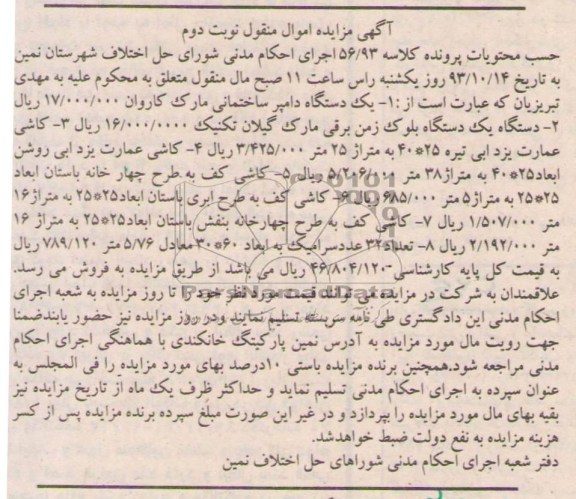 آگهی مزایده اموال منقول نوبت دوم
حسب محتویات پرونده کلاسه ۵۶/۹۳ اجرای احکام مدنی شورای حل اختلاف شهرستان نمین
به تاریخ ۹۳/۱۰/۱۴ روز یکشنبه راس ساعت ۱۱ صبح مال منقول متعلق به محکوم علیه به مهدی
تبریزیان که عبارت است از :۱- یک دستگاه دامپر ساختمانی مارک کاروان ۱۷/۰۰۰/۰۰۰ ریال
۲- دستگاه یک دستگاه بلوک زمن برقی مارک گیلان تکنیک ۱۶/۰۰۰/۰۰۰۰ ریال ۳- کاشی
عمارت یزد ابی تیره ۲۵*۴۰ به متراژ ۲۵ متر ۳/۴۲۵/۰۰۰ ریال ۴- کاشی عمارت یزد ابی روشن
ابعاد۲۵*۴۰ به متراژ۳۸ متر ۵/۲۰۶/۰۰۰ ریال ۵- کاشی کف به طرح چهار خانه باستان ابعاد
۲۵*۲۵ به متراژ۵ متر ۶۸۵/۰۰۰ ریال ۶- کاشی کف به طرح ابری باستان ابعاد۲۵*۲۵ به متراژ۱۶
متر ۱/۵۰۷/۰۰۰ ریال ۷- کاشی کف به طرح چهارخانه بنفش باستان ابعاد۲۵*۲۵ به متراژ ۱۶
متر ۲/۱۹۲/۰۰۰ ریال ۸- تعداد۳۲ عددسرامیک به ابعاد ۶۰*۳۰معادل ۵/۷۶ متر ۷۸۹/۱۲۰ ریال
به قیمت کل پایه کارشناسی ۴۶/۸۰۴/۱۲۰ ریال می باشد از طریق مزایده به فروش می رسد.
علاقمندان به شرکت در مزایده می توانند قیمت مورد نظر خود را تا روز مزایده به شعبه اجرای
احکام مدنی این دادگستری طی نامه سربسته تسلیم نمایند و در روز مزایده نیز حضور یابندضمنا
جهت رویت مال مورد مزایده به آدرس نمین پارکینگ خانکندی با هماهنگی اجرای احکام
مدنی مراجعه شود.همچنین برنده مزایده بایستی ۱۰درصد بهای مورد مزایده را فی المجلس به
عنوان سپرده به اجرای احکام مدنی تسلیم نماید و حداکثر ظرف یک ماه از تاریخ مزایده نیز
بقیه بهای مال مورد مزایده را بپردازد و در غیر این صورت مبلغ سپرده برنده مزایده پس از کسر
هزینه مزایده به نفع دولت ضبط خواهدشد.
دفتر شعبه اجرای احکام مدنی شوراهای حل اختلاف نمین